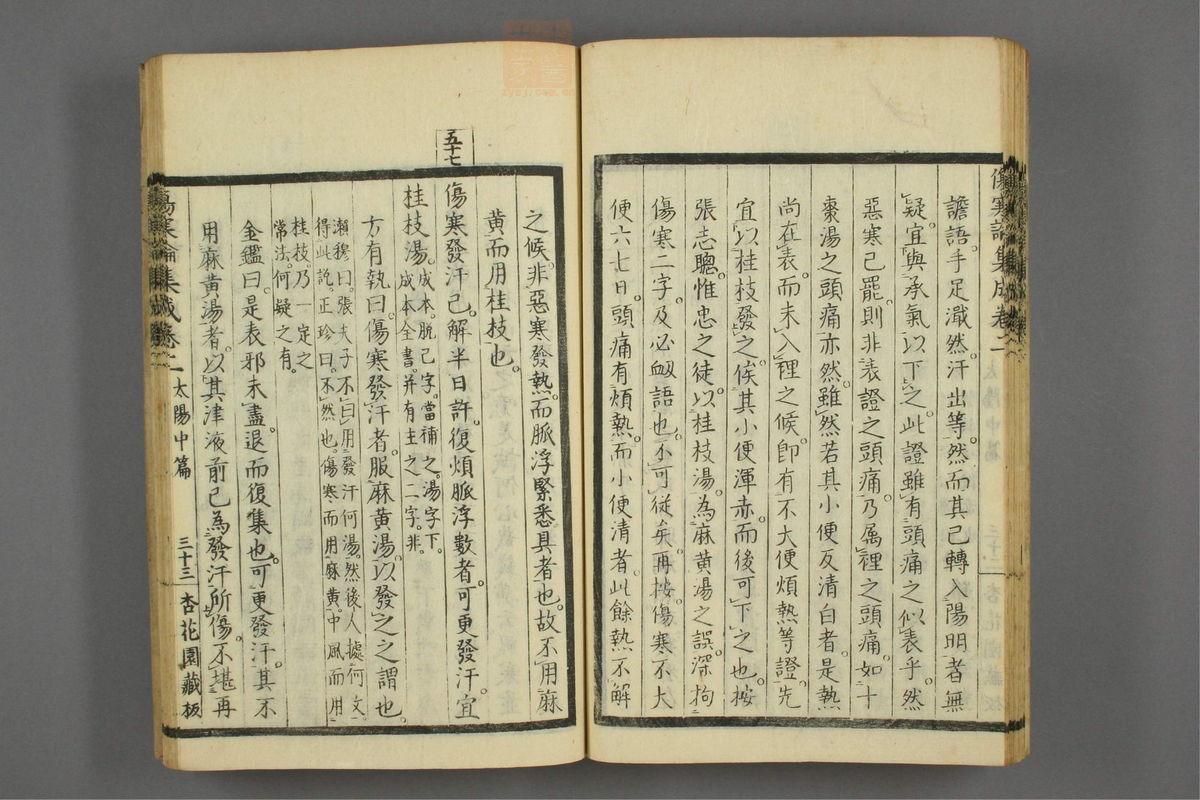 傷寒論集成卷二
譫語。手足濈然。汗出等。然而其已轉入陽明者無
疑。宜與承氣以下之。此證雖有頭痛之似表乎。然
惡寒已罷。則非表證之頭痛。乃属裡之頭痛。如十
棗湯之頭痛亦然。雖然若其小便反清白者。是熱
尚在表。而未入裡之候。即有不大便煩熱等證。先
宜以桂枝發之。俟其小便渾赤。而後可下之也。按
張志聰。惟忠之徒。以桂枝湯。為麻黄湯之誤。深拘
傷寒二字。及必衂語也。不可從矣。再按傷寒不大
便六七日。頭痛有煩熱。而小便清者。此餘熱不解
之候。非惡寒發熱。而脈浮緊悉具者也。故不用麻
黄而用桂枝也。
五十七
傷寒發汗已。解半日許。復煩脈浮數者。可更發汗。宜
桂枝湯。成本。脱已字。當補之。湯字下。
成本全書。并有主之二字。非。
方有執曰。傷寒發汗者。服麻黄湯以發之之謂也。
瀨穆曰。張夫子不曰用發汗何湯。然後人據何文
得此説。正珍曰。不然也。傷寒而用麻黄。中風而用
桂枝乃一定之
常法。何疑之有。
金鑑曰。是表邪未盡退而復集也。可更發汗。其不
用麻黄湯者。以其津液前已為發汗所傷。不堪再
傷寒論集成卷二 太陽中篇 三十三 杏花園藏板